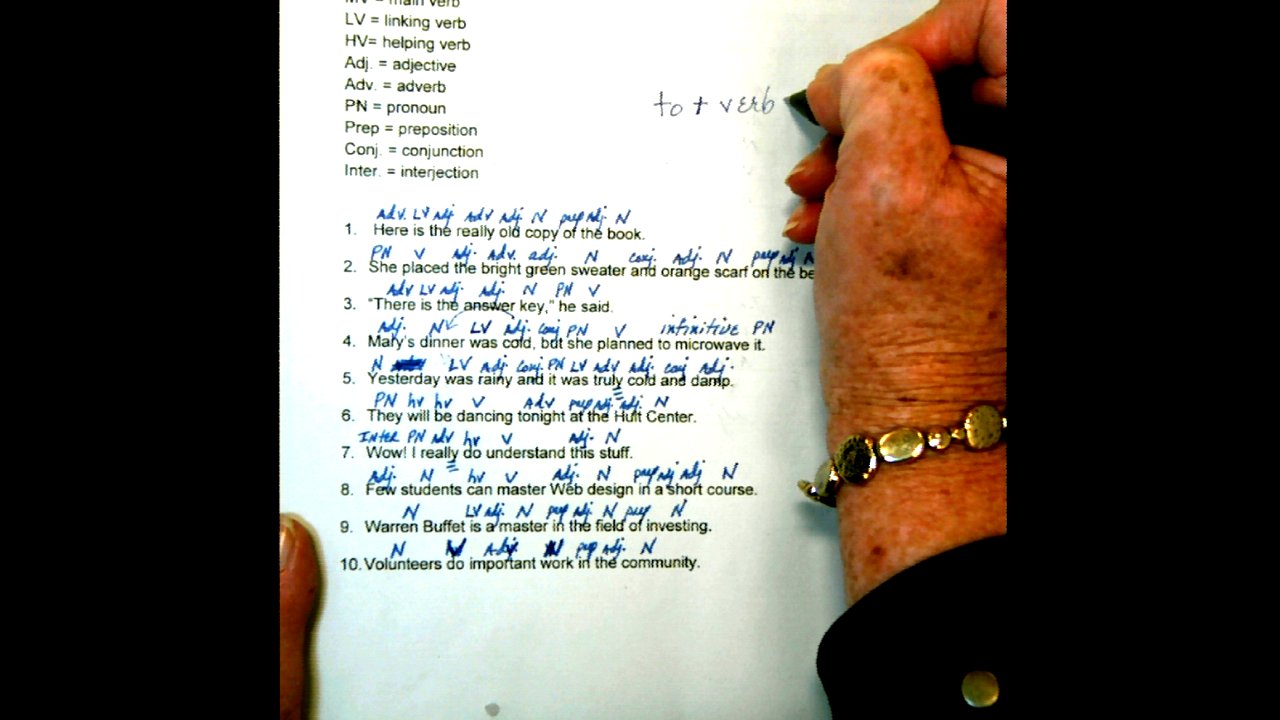 MV = main verb
LV = linking verb
HV= helping verb
Adj. = adjective
Adv. = adverb
PN = pronoun
to + verb
Prep = preposition
Conj. = conjunction
Inter. = interjection
Adv. LV Adj. Adv Adj. N prep Adj. N
1. Here is the really old copy of the book.
PN V Adj. Adv. adj. N conj. Adj. N prep adj N
2. She placed the bright green sweater and orange scarf on the be
Adv LV Adj. Adj. N PN V
3. "There is the answer key," he said.
Adj. N LV Adj. conj PN V infinitive PN
4. Mary's dinner was cold, but she planned to microwave it.
N LV Adj. conj. PN LV Adv Adj. conj Adj.
5. Yesterday was rainy and it was truly cold and damp.
PN hv hv V Adv prep adj. adj. N
6. They will be dancing tonight at the Hult Center.
Inter PN Adv hv V Adj. N
7. Wow! I really do understand this stuff.
Adj. N hv V Adj. N prep Adj Adj N
8. Few students can master Web design in a short course.
N LV Adj. N prep adj N prep N
9. Warren Buffet is a master in the field of investing.
N V Adj. N prep adj. N
10. Volunteers do important work in the community.